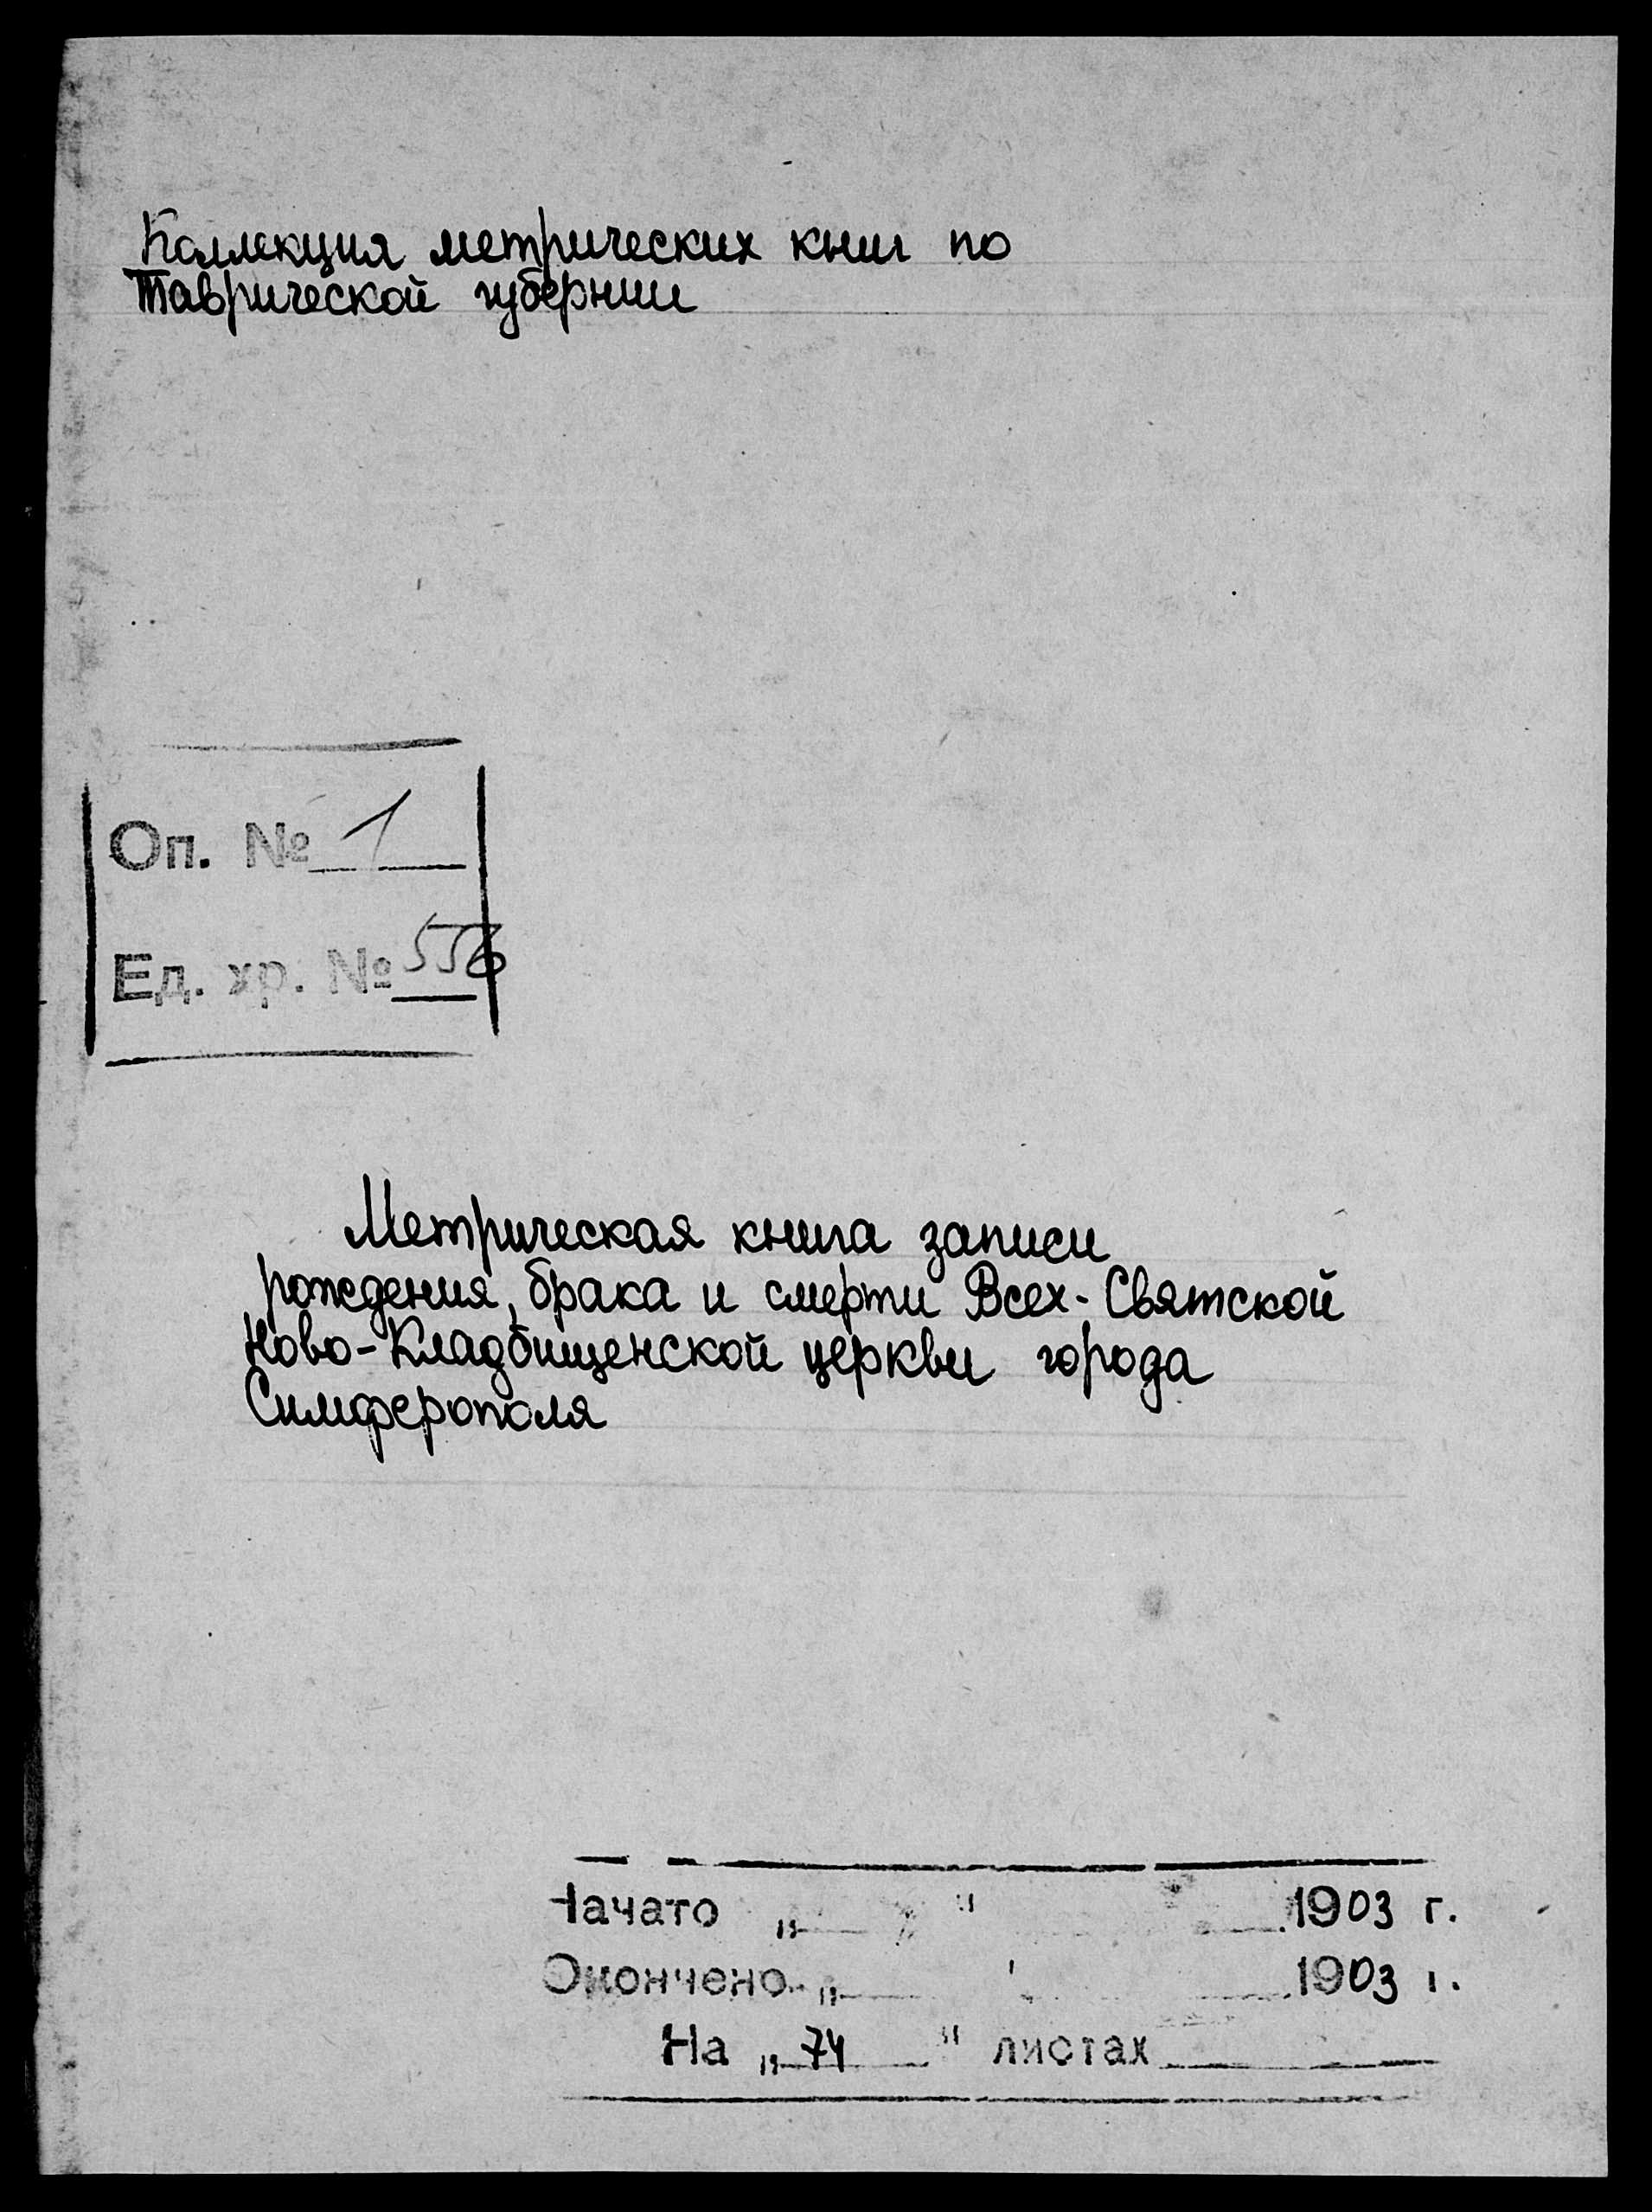 Коллекция метрических книг по
Таврической губернии
Оп. № 1
Ед. хр. № 556
Метрическая книга записи
рождения, брака и смерти Всех-Святской
Ново-Кладбищенской церкви города
Симферополя
Начато „ " 1903 г.
Окончено „ " 1903 г.
На „ 74 " листах